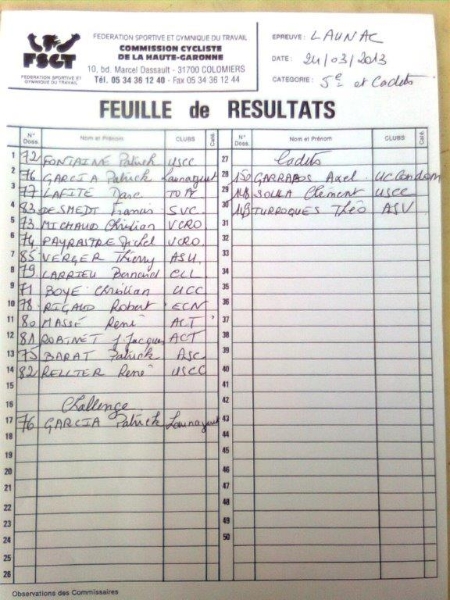 FSGT
FEDERATION SPORTIVE ET GYMNIQUE DU TRAVAIL
FEDERATION SPORTIVE ET GYMNIQUE DU TRAVAIL
COMMISSION CYCLISTE
DE LA HAUTE-GARONNE
10, bd. Marcel Dassault - 31700 COLOMIERS
Tél. 05 34 36 12 40 - Fax 05 34 36 12 44
EPREUVE : LAUNAC
DATE : 24/03/2013
CATEGORIE : 5e et Cadets
FEUILLE de RESULTATS
N° Doss. Nom et Prénom CLUBS Caté.
1 72 FONTAINE Patrick USCC
2 76 GARCIA Patrick Launaguet
3 77 LAFITE Marc
4 83 DESMEDT Francis SVC.
5 73 MICHAUD Christian VCRO
6 74 PAYRASTRE Michel VCRO.
7 85 VERGER Thierry ASU.
8 79 LARRIEU Bernard CLL
9 71 BOYE Christian UCC
10 78 RIGAUD Robert ECN
11 80 MASSÉ René ACT
12 81 ROBINET J Jacques ACT
13 75 BARAT Patrick ASC
14 82 RELLIER René USCC
15
16 Challenge
17 76 GARCIA Patrick Launaguet
18
19
20
21
22
23
24
25
26
N° Doss. Nom et Prénom CLUBS Caté.
27 Cadets
28 150 GARRABOS Axel UC Condom
29 148 SOULA Clément USCC
30 149 TURROQUES Théo ASV
31
32
33
34
35
36
37
38
39
40
41
42
43
44
45
46
47
48
49
50
Observations des Commissaires